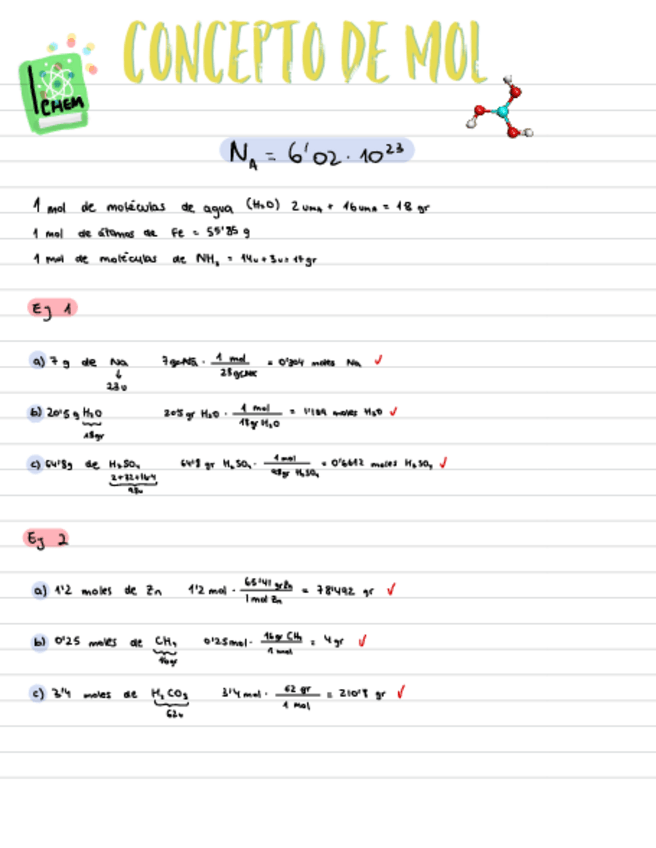 CONCEPTO DE MOL
CHEM
N_A = 6'02 · 10²³
1 mol de moléculas de agua (H₂O) 2 uma + 16 uma = 18 gr
1 mol de átomos de Fe = 55'85 g
1 mol de moléculas de NH₃ = 14u + 3u = 17gr
Ej 1
a) 7 g de Na 7 gr Na · 1 mol / 23 gr Na = 0'304 moles Na ✓
23 u
b) 20'5 g H₂O 20'5 gr H₂O · 1 mol / 18 gr H₂O = 1'139 moles H₂O ✓
18gr
c) 64'8g de H₂SO₄ 64'8 gr H₂SO₄ · 1 mol / 98 gr H₂SO₄ = 0'6612 moles H₂SO₄ ✓
2+32+16·4
98u
Ej 2
a) 1'2 moles de Zn 1'2 mol · 65'41 gr Zn / 1 mol Zn = 78'492 gr ✓
b) 0'25 moles de CH₄ 0'25 mol · 16 gr CH₄ / 1 mol = 4 gr ✓
16gr
c) 3'4 moles de H₂CO₃ 3'4 mol · 62 gr / 1 mol = 210'8 gr ✓
62u